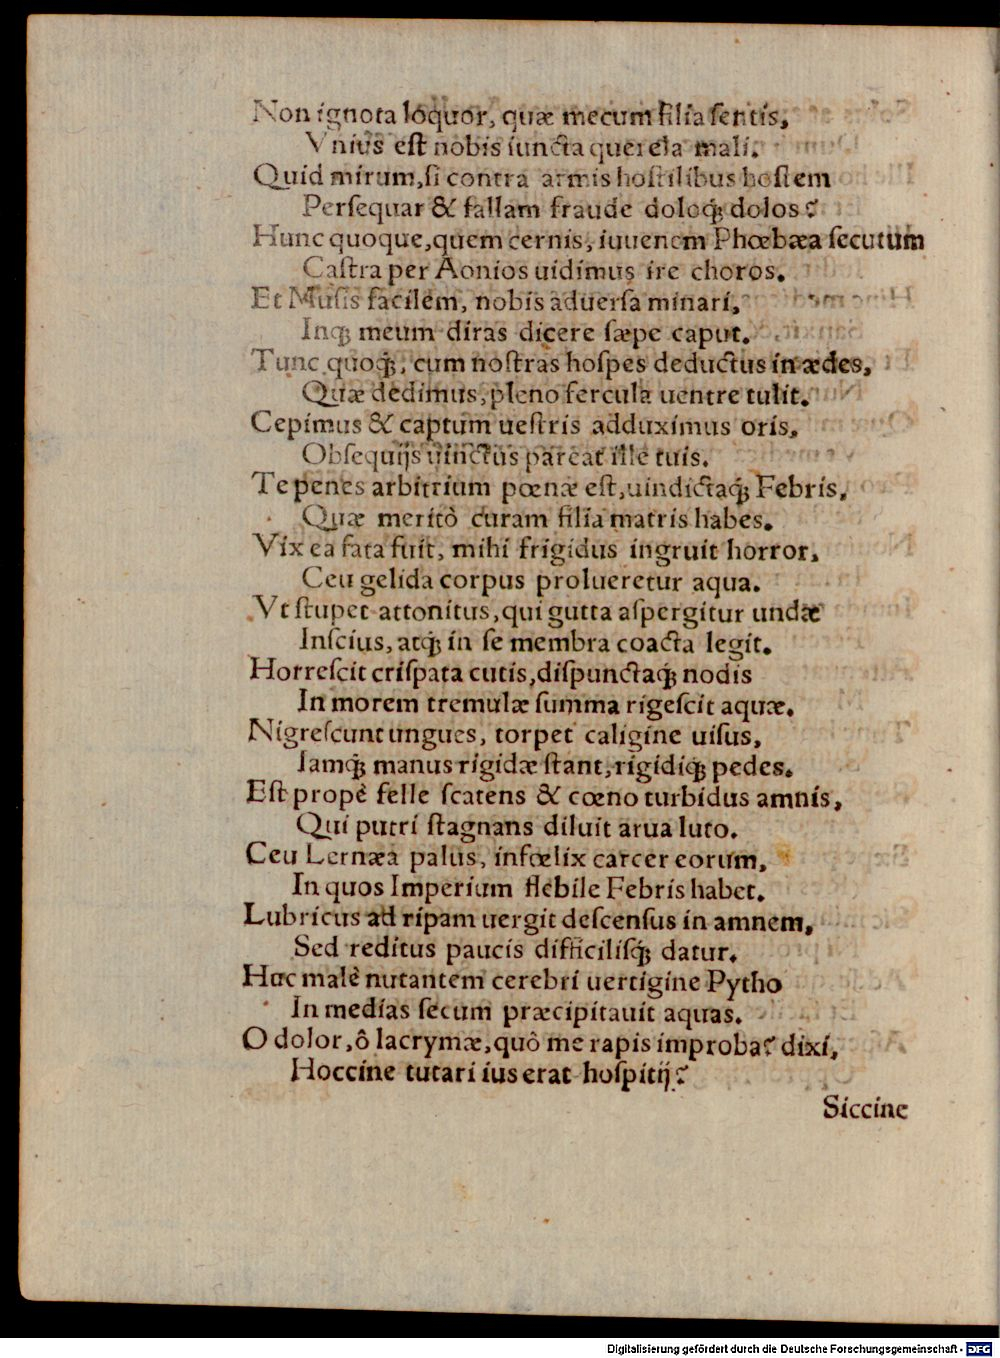 Non ignota loquor, quæ mecum filia sentis,
Vnius est nobis iuncta querela mali.
Quid mirum, si contra armis hostilibus hostem
Persequar & fallam fraude doloq; dolos?
Hunc quoque, quem cernis, iuuenem Phœbæa secutum
Castra per Aonios uidimus ire choros.
Et Musis facilem, nobis aduersa minari,
Inq; meum diras dicere sæpe caput.
Tunc quoq;, cum nostras hospes deductus in ædes,
Quæ dedimus, pleno fercula uentre tulit.
Cepimus & captum uestris adduximus oris,
Obsequijs uinctus pareat ille tuis.
Te penes arbitrium pœnæ est, uindictaq; Febris,
Quæ meritò curam filia matris habes.
Vix ea fata fuit, mihi frigidus ingruit horror,
Ceu gelida corpus prolueretur aqua.
Vt stupet attonitus, qui gutta aspergitur undæ
Inscius, atq; in se membra coacta legit.
Horrescit crispata cutis, dispunctaq; nodis
In morem tremulæ summa rigescit aquæ.
Nigrescunt ungues, torpet caligine uisus,
Iamq; manus rigidæ stant, rigidiq; pedes.
Est propè felle scatens & cœno turbidus amnis,
Qui putri stagnans diluit arua luto.
Ceu Lernæa palus, infœlix carcer eorum,
In quos Imperium flebile Febris habet.
Lubricus ad ripam uergit descensus in amnem,
Sed reditus paucis difficilisq; datur.
Huc malè nutantem cerebri uertigine Pytho
In medias secum præcipitauit aquas.
O dolor, ô lacrymæ, quô me rapis improba? dixi,
Hoccine tutari ius erat hospitij?
Siccine
Digitalisierung gefördert durch die Deutsche Forschungsgemeinschaft - DFG